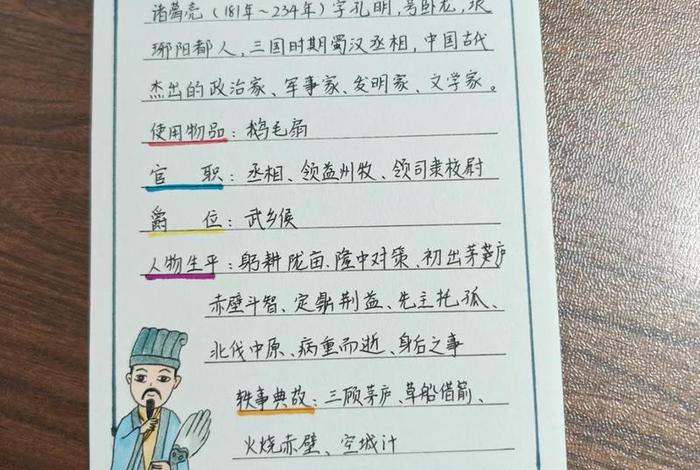 诸葛亮(181年~234年)字孔明,号卧龙,琅
琊阳都人,三国时期蜀汉丞相,中国古代
杰出的政治家、军事家、发明家、文学家。
使用物品:鹅毛扇
官 职:丞相、领益州牧、领司隶校尉
爵 位:武乡侯
人物生平:躬耕陇亩、隆中对策、初出茅庐
赤壁斗智、定鼎荆益、先主托孤、
北伐中原、病重而逝、身后之事
轶事典故:三顾茅庐、草船借箭、
火烧赤壁、空城计